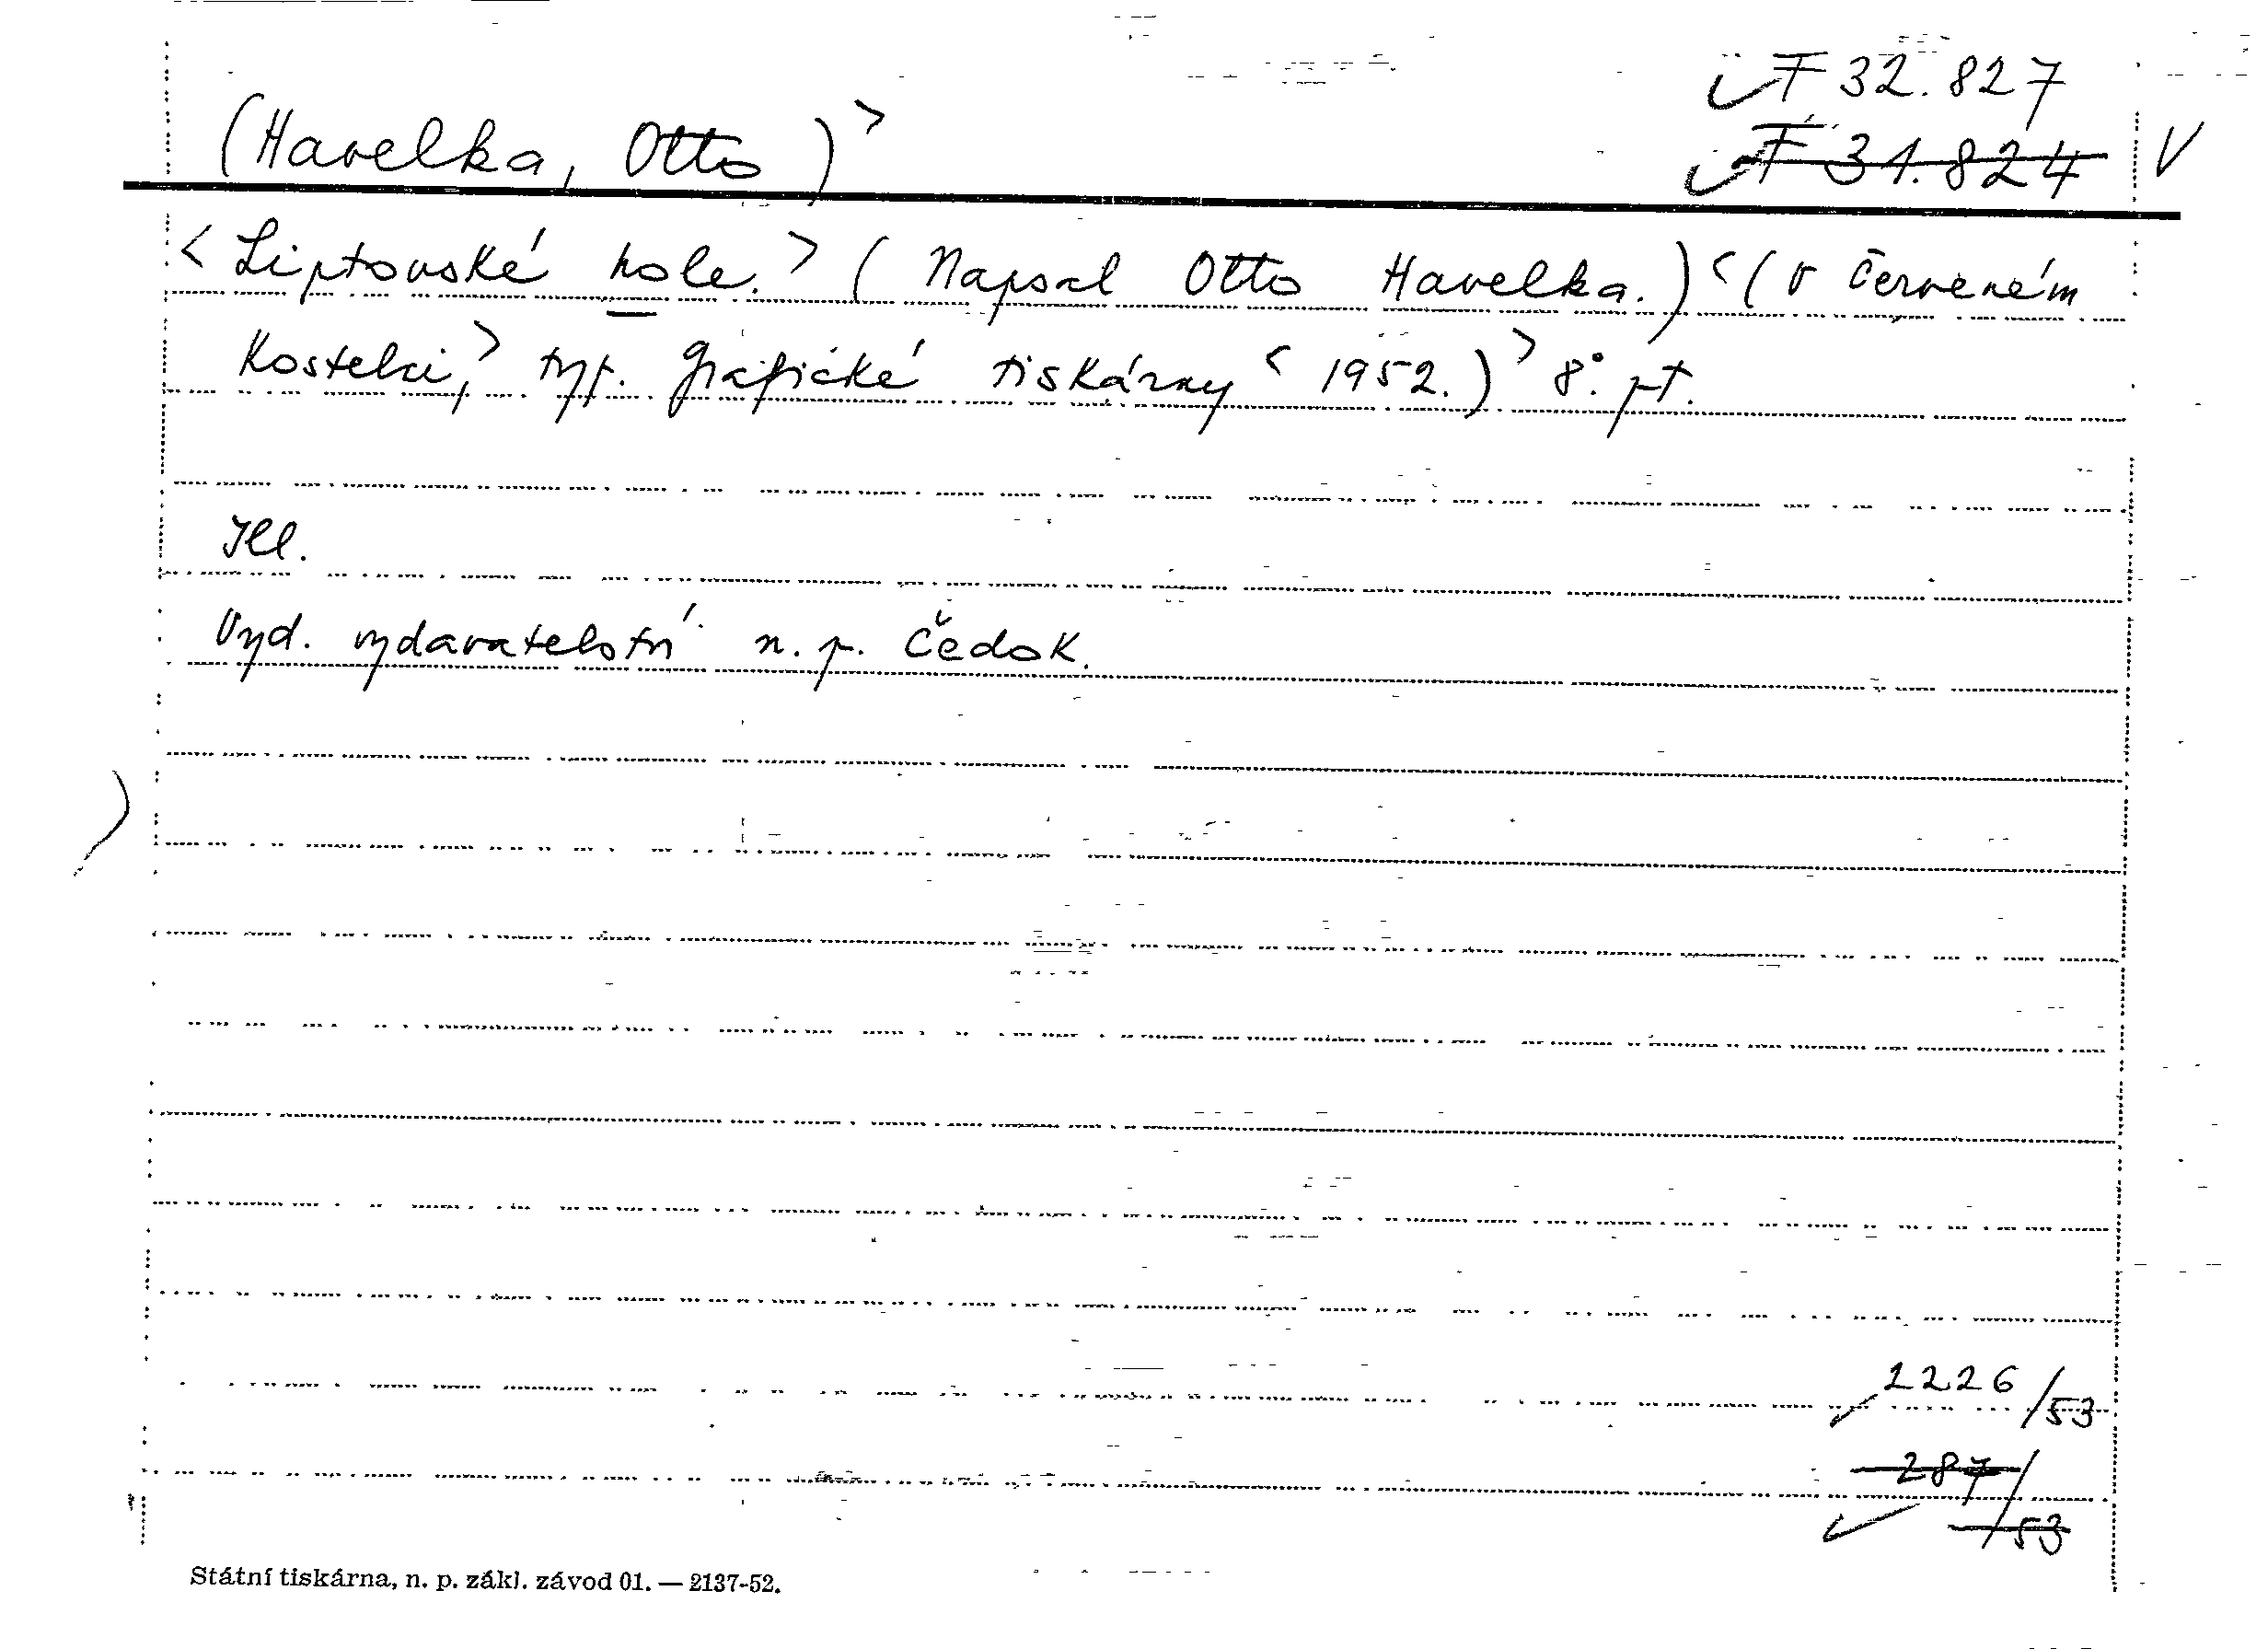 F 32.827
(Havelka, Otto)>
F 31.824 V
<Liptovské hole.> (Napsal Otto Havelka.) <(V Červeném
Kostelci,> typ. Grafické tiskárny <1952.)> 8°. pt.
Ill.
Vyd. vydavatelství n. p. Čedok.
2226/53
287/53
Státní tiskárna, n. p. zákl. závod 01. — 2137-52.